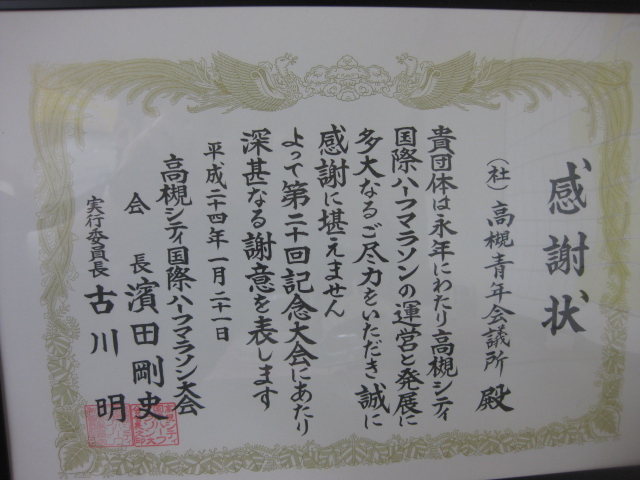 感謝状
(社)高槻青年会議所 殿
貴団体は永年にわたり高槻シティ
国際ハーフマラソンの運営と発展に
多大なるご尽力をいただき誠に
感謝に堪えません
よって第二十回記念大会にあたり
深甚なる謝意を表します
平成二十四年一月二十一日
高槻シティ国際ハーフマラソン大会
会長 濱田剛史
実行委員長 古川明